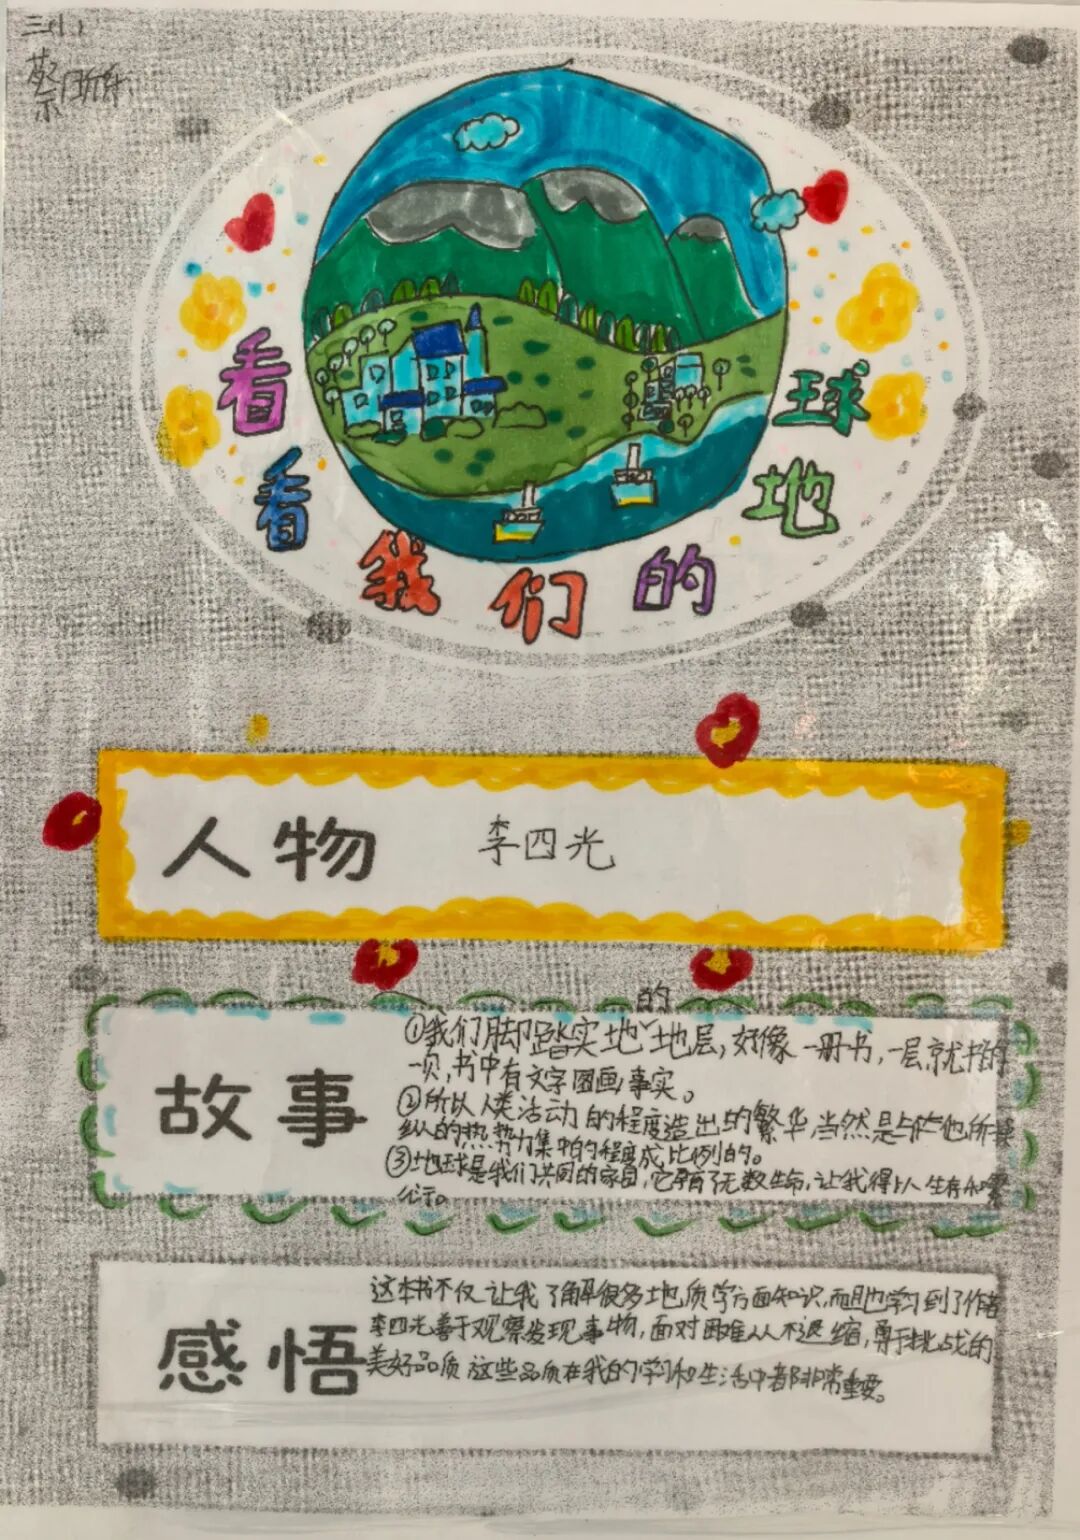 三(1)
蔡
看看我们的地球
人物 李四光
故事
的
①我们脚踏实地地层,好像一册书,一层就书的
一页,书中有文字图画事实。
②所以人类活动的程度造出的繁华,当然是与他所
纵的热势力集中的程度成比例的。
③地球是我们共同的家园,它孕育了无数生命,让我得以人生存和繁
感悟
这本书不仅让我了解很多地质学方面知识,而且也学习到了作者
李四光善于观察发现事物,面对困难从不退缩,勇于挑战的
美好品质这些品质在我的学习和生活中都非常重要。